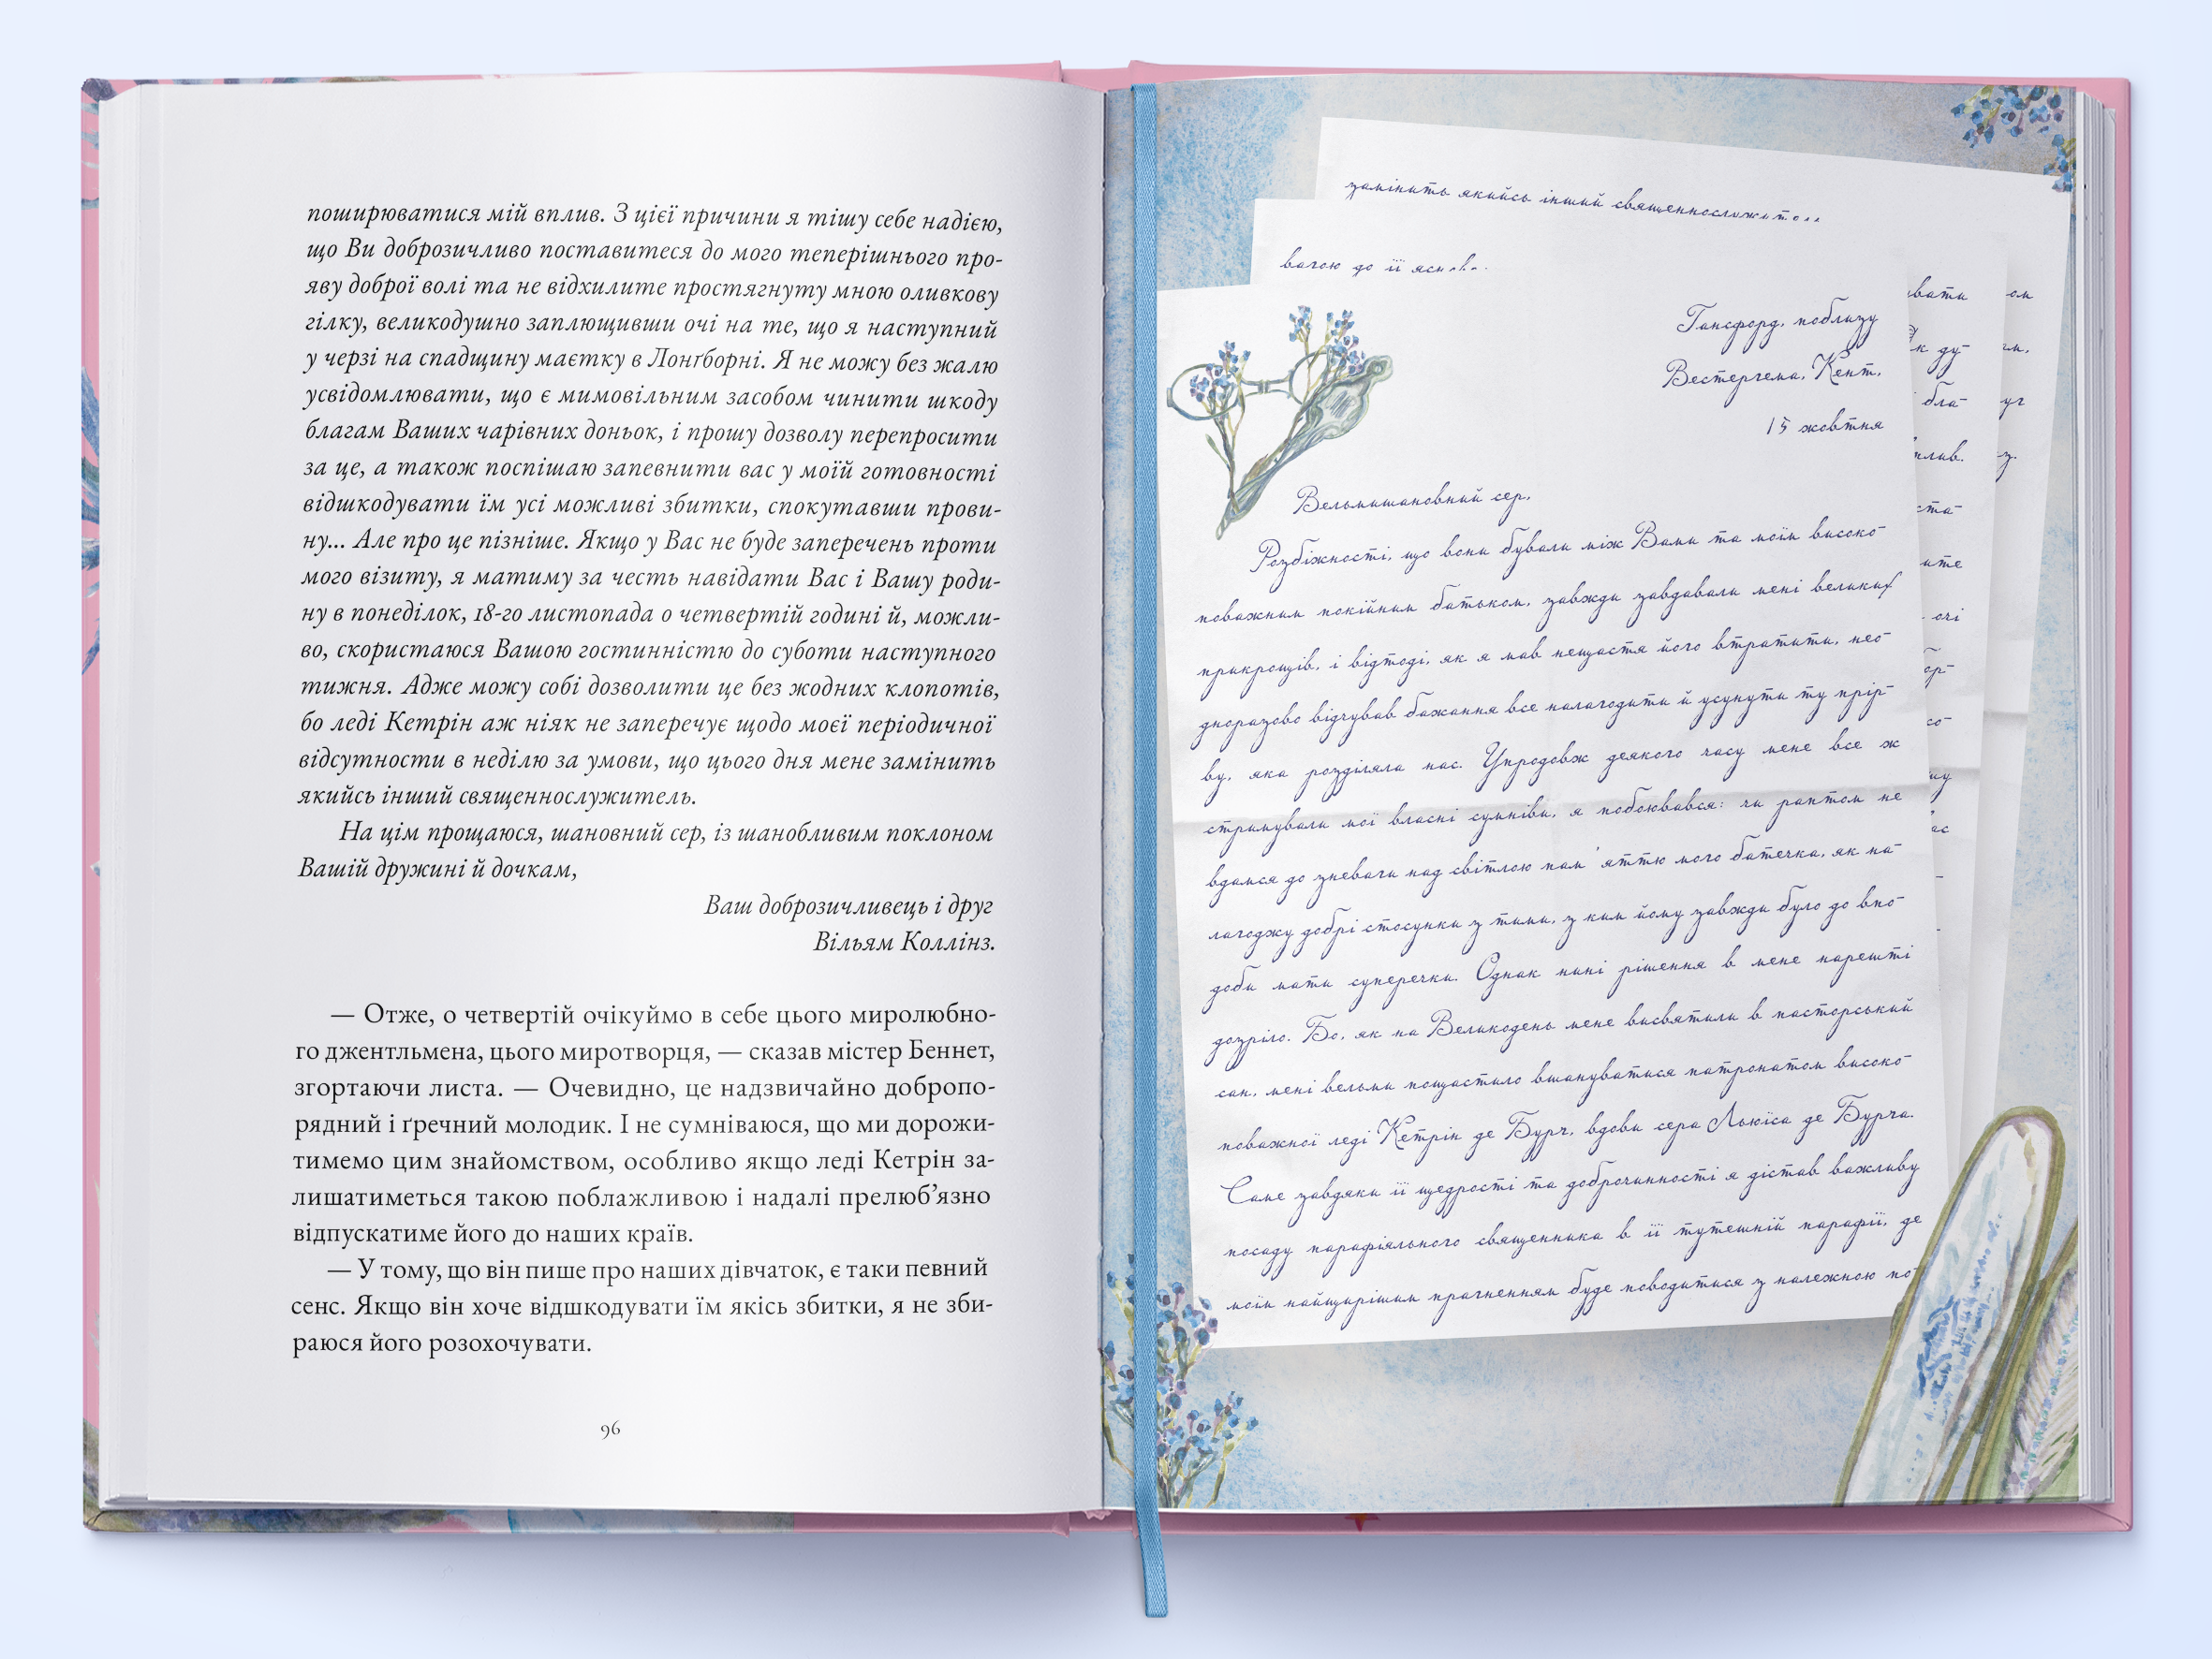 поширюватися мій вплив. З цієї причини я тішу себе надією,
що Ви доброзичливо поставитеся до мого теперішнього про-
яву доброї волі та не відхилите простягнуту мною оливкову
гілку, великодушно заплющивши очі на те, що я наступний
у черзі на спадщину маєтку в Лонґборні. Я не можу без жалю
усвідомлювати, що є мимовільним засобом чинити шкоду
благам Ваших чарівних доньок, і прошу дозволу перепросити
за це, а також поспішаю запевнити вас у моїй готовності
відшкодувати їм усі можливі збитки, спокутавши прови-
ну... Але про це пізніше. Якщо у Вас не буде заперечень проти
мого візиту, я матиму за честь навідати Вас і Вашу роди-
ну в понеділок, 18-го листопада о четвертій годині й, можли-
во, скористаюся Вашою гостинністю до суботи наступного
тижня. Адже можу собі дозволити це без жодних клопотів,
бо леді Кетрін аж ніяк не заперечує щодо моєї періодичної
відсутности в неділю за умови, що цього дня мене замінить
якийсь інший священнослужитель.
На цім прощаюся, шановний сер, із шанобливим поклоном
Вашій дружині й дочкам,
Ваш доброзичливець і друг
Вільям Коллінз.
— Отже, о четвертій очікуймо в себе цього миролюбно-
го джентльмена, цього миротворця, — сказав містер Беннет,
згортаючи листа. — Очевидно, це надзвичайно добропо-
рядний і ґречний молодик. І не сумніваюся, що ми дорожи-
тимемо цим знайомством, особливо якщо леді Кетрін за-
лишатиметься такою поблажливою і надалі прелюб’язно
відпускатиме його до наших країв.
— У тому, що він пише про наших дівчаток, є таки певний
сенс. Якщо він хоче відшкодувати їм якісь збитки, я не зби-
раюся його розохочувати.
96
замінить якийсь інший священнослужит...
вагою до її
Гансфорд, поблизу
Вестергема, Кент,
15 жовтня
Вельмишановний сер,
Розбіжності, що вони бували між Вами та моїм високо-
поважним покійним батьком, завжди завдавали мені великих
прикрощів, і відтоді, як я мав нещастя його втратити, нео-
дноразово відчував бажання все налагодити й усунути ту прір-
ву, яка розділяла нас. Упродовж деякого часу мене все ж
стримували мої власні сумніви, я побоювався: чи раптом не
вдамся до зневаги над світлою пам’яттю мого батечка, як на-
лагоджу добрі стосунки з тими, з ким йому завжди було до впо-
доби мати суперечки. Однак нині рішення в мене нарешті
дозріло. Бо, як на Великодень мене висвятили в пасторський
сан, мені вельми пощастило вшануватися патронатом високо-
поважної леді Кетрін де Бурґ, вдови сера Льюїса де Бурґа.
Саме завдяки її щедрості та доброчинності я дістав важливу
посаду парафіяльного священника в її тутешній парафії, де
моїм найщирішим прагненням буде поводитися з належною по-